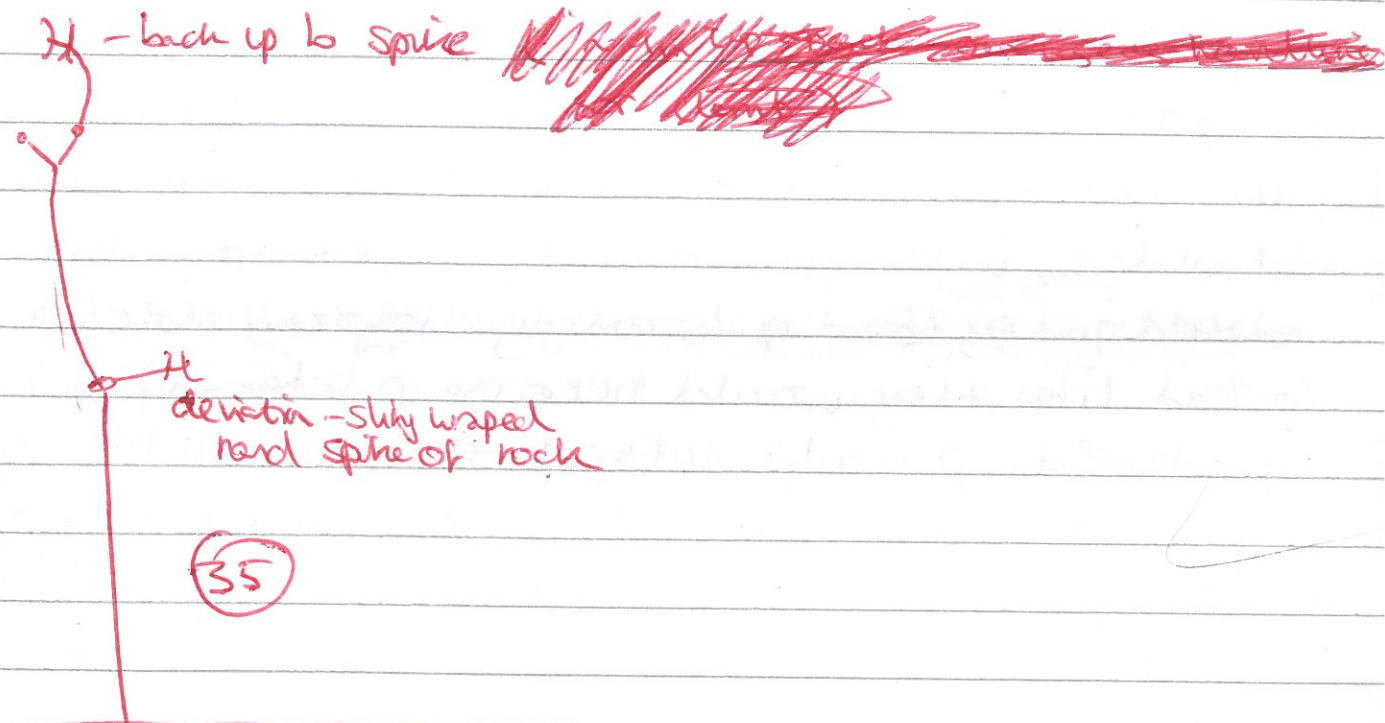 - back up to spike
deviation - sling wraped
rond spike of rock
35